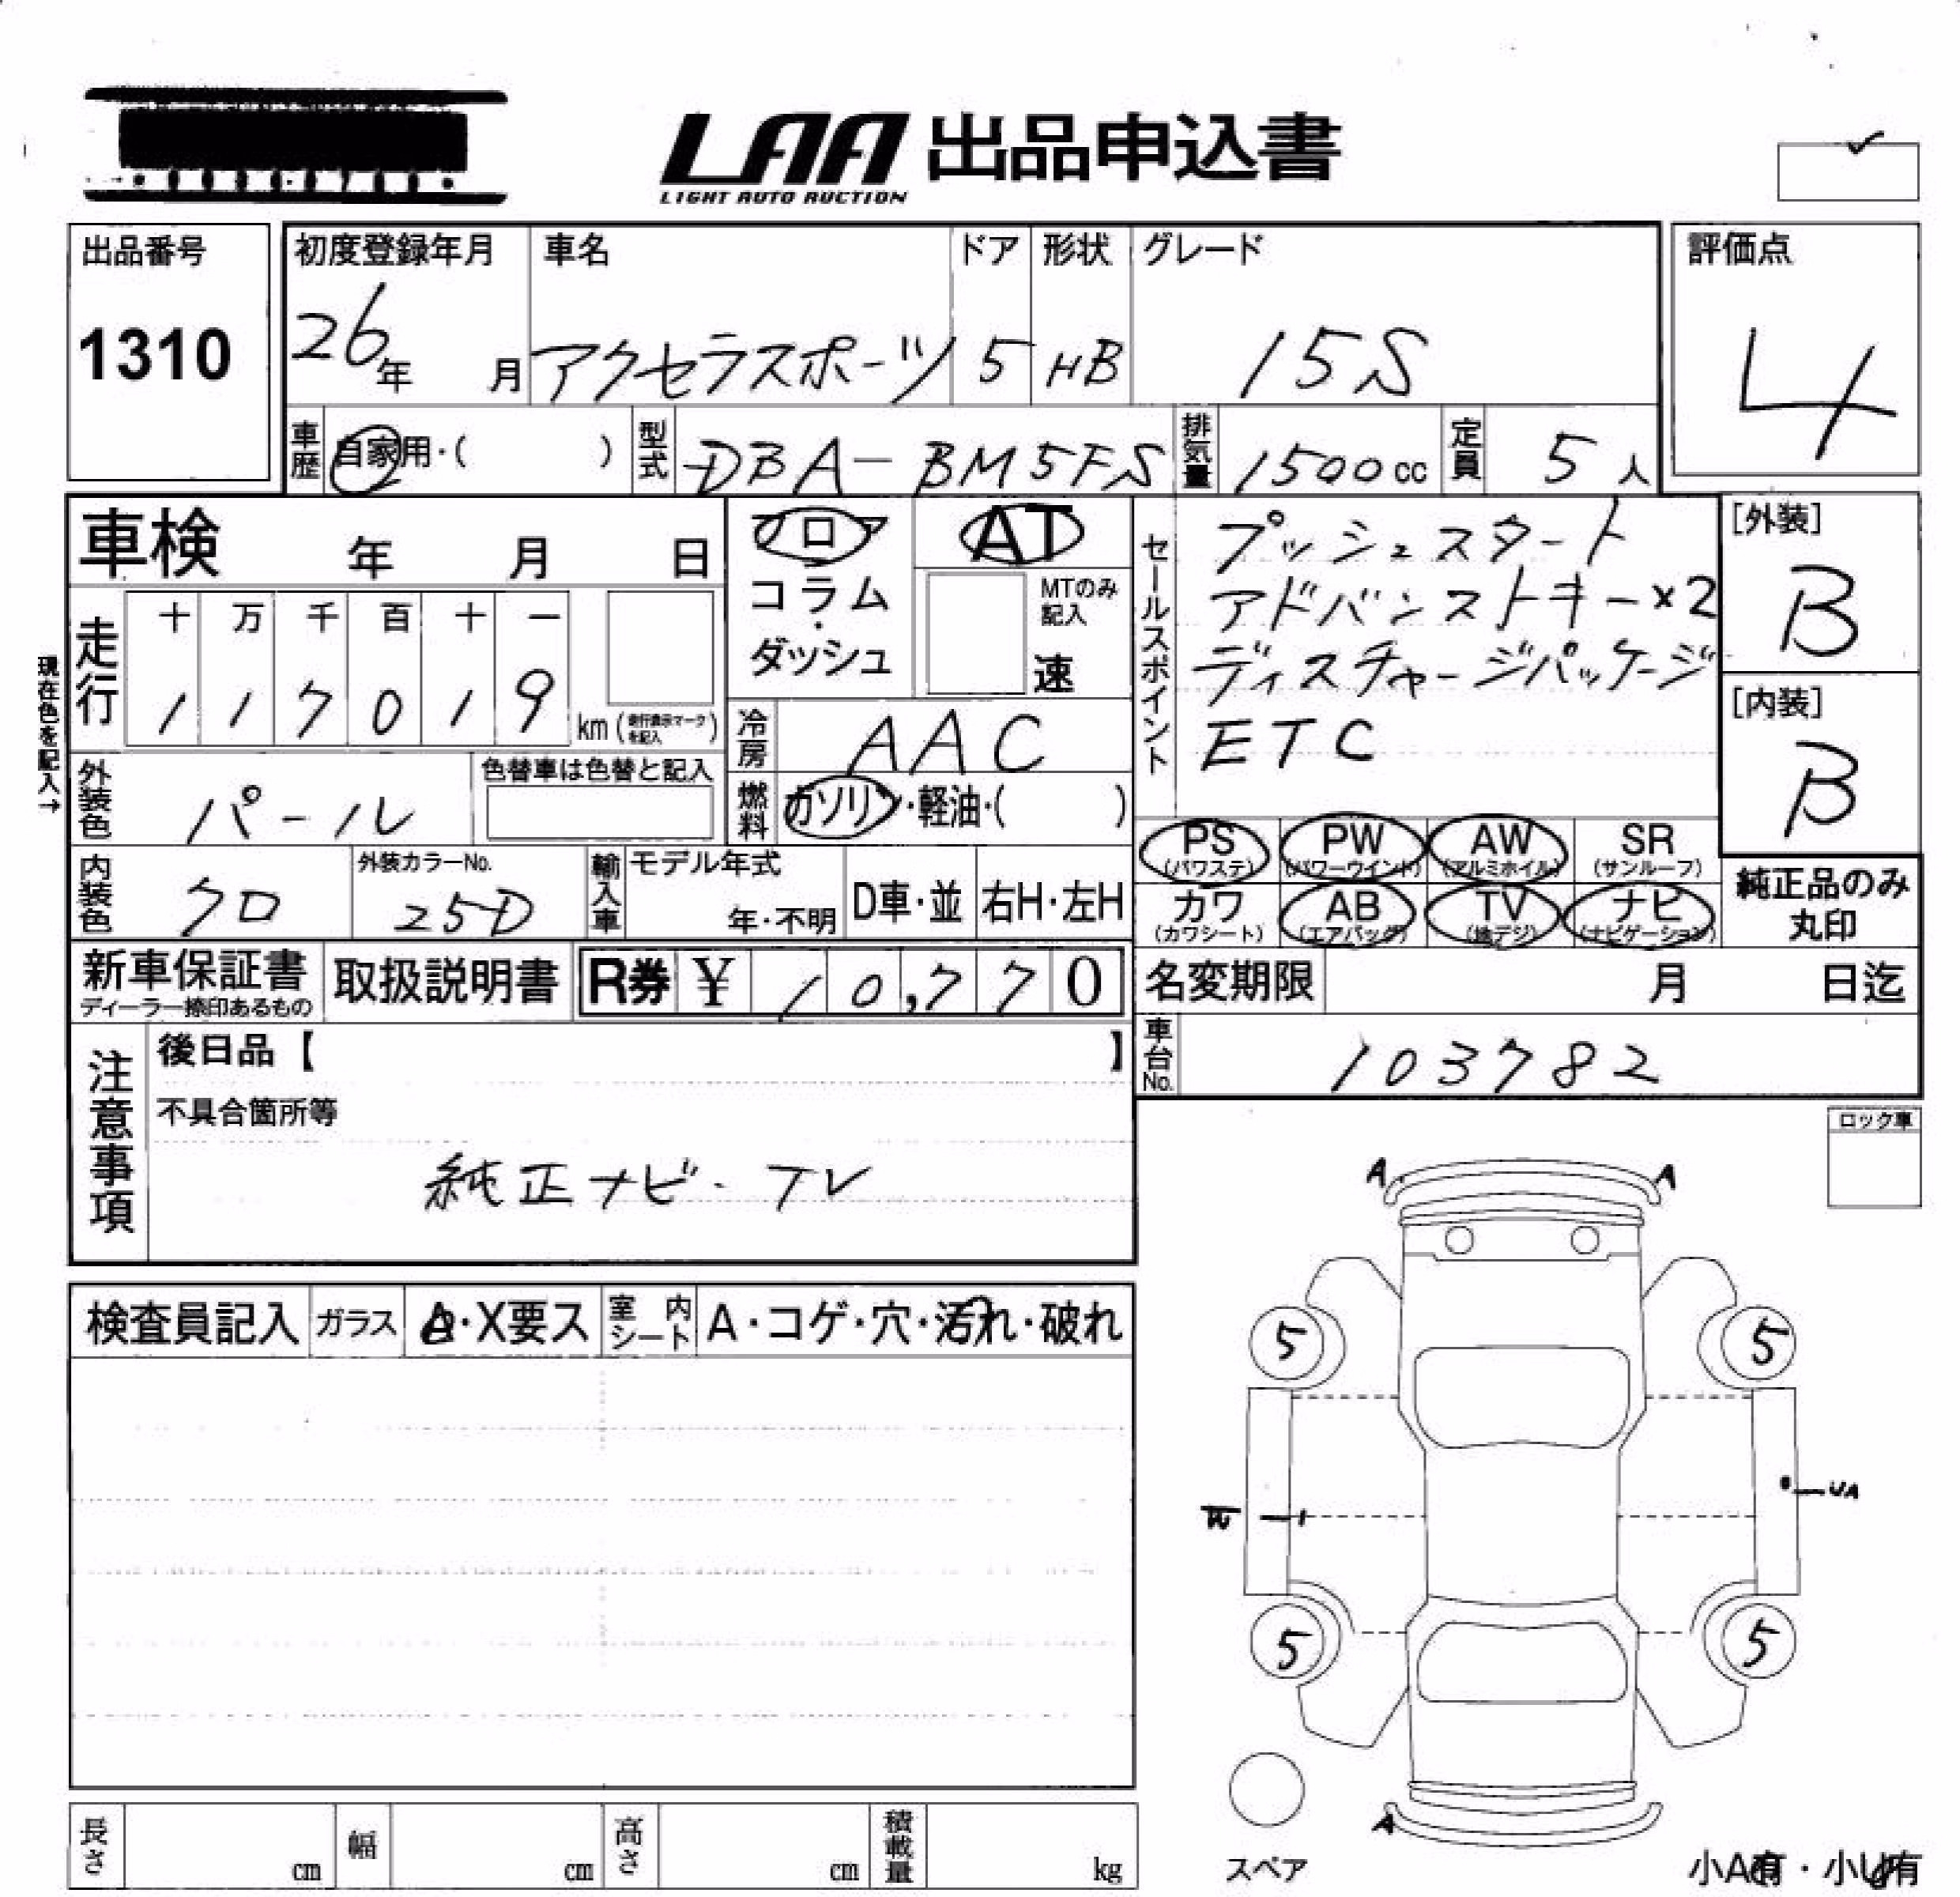 LAA 出品申込書
LIGHT AUTO AUCTION
出品番号
1310
初度登録年月
26年 月
車名
アクセラスポーツ
ドア
5
形状
HB
グレード
15S
評価点
4
車歴
自家用・( )
型式
DBA-BM5FS
排気量
1500cc
定員
5人
車検 年 月 日
フロア
コラム
・
ダッシュ
AT
MTのみ
記入
速
セールスポイント
プッシュスタート
アドバンストキー×2
ディスチャージパッケージ
ETC
[外装]
B
[内装]
B
現在色を記入→
走行
十 万 千 百 十 一
1 1 7 0 1 9
km(走行表示マークを記入)
冷房
AAC
外装色
パール
色替車は色替と記入
燃料
ガソリン・軽油・( )
PS
(パワステ)
PW
(パワーウインド)
AW
(アルミホイル)
SR
(サンルーフ)
内装色
クロ
外装カラーNo.
25D
輸入車
モデル年式
年・不明
D車・並
右H・左H
カワ
(カワシート)
AB
(エアバッグ)
TV
(地デジ)
ナビ
(ナビゲーション)
純正品のみ
丸印
新車保証書
ディーラー捺印あるもの
取扱説明書
R券 ¥ 10,770
名変期限 月 日迄
車台No.
103782
注意事項
後日品【 】
不具合箇所等
純正ナビ・TV
ロック車
A A
検査員記入
ガラス
A・X要ス
室内シート
A・コゲ・穴・汚れ・破れ
5 5
W
UA
5 5
A
スペア
小A有・小U有
長さ cm
幅 cm
高さ cm
積載量 kg